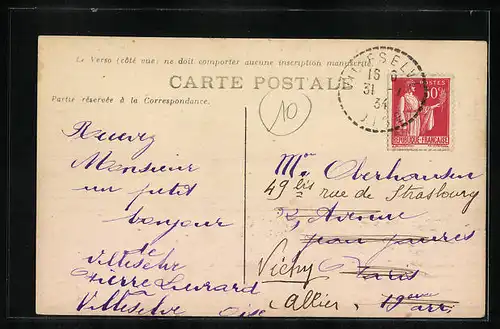 Le Verso (côté vue) ne doit comporter aucune inscription manuscrite
CARTE POSTALE
Partie réservée à la Correspondance.
10
VILLESELVE
16
31
34
OISE
POSTES
50c
REPUBLIQUE FRANÇAISE
Recevez
Monsieur
un petit
bonjour
de
Villeselve
Pierre
Villeselve Oise
Mr Oberhausen
49 bis rue de Strasbourg
2, Avenue
Jean Jaurès
Vichy Paris
Allier. 19eme arr.